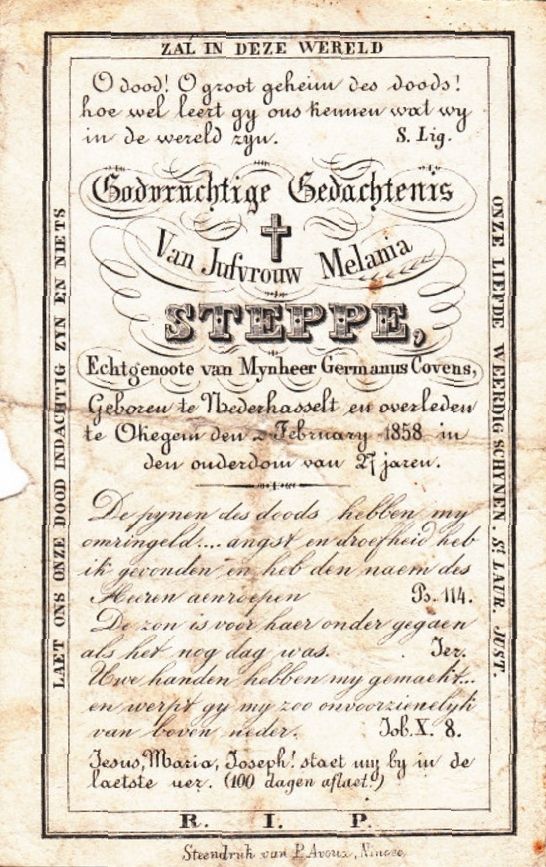 LAET ONS ONZE DOOD INDACHTIG ZYN EN NIETS
ZAL IN DEZE WERELD
ONZE LIEFDE WEERDIG SCHYNEN. St. LAUR. JUST.
O dood! O groot geheim des doods!
hoe wel leert gy ons kennen wat wy
in de wereld zyn. S. Lig.
Godvruchtige Gedachtenis
Van Jufvrouw Melania
STEPPE,
Echtgenoote van Mynheer Germanus Covens,
Geboren te Nederhasselt en overleden
te Okegem den 2 February 1858 in
den ouderdom van 27 jaren.
De pynen des doods hebben my
omringeld.... angst en droefheid heb
ik gevonden en heb den naem des
Heeren aenroepen Ps. 114.
De zon is voor haer onder gegaen
als het nog dag was. Jer.
Uwe handen hebben my gemaekt...
en werpt gy my zoo onvoorzienelyk
van boven neder. Job. X. 8.
Jesus, Maria, Joseph! staet my by in de
laetste uer. (100 dagen aflaet!)
R. I. P.
Steendruk van P. Avoux, Ninove.